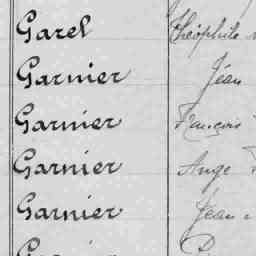 Garel Théophile
Garnier Jean
Garnier François
Garnier Ange
Garnier Jean